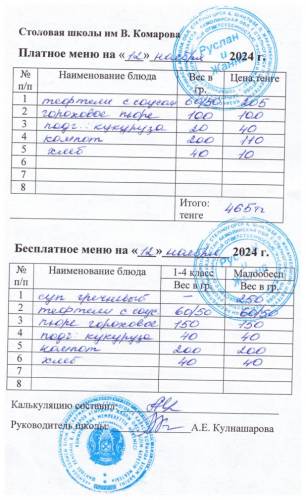 Столовая школы им В. Комарова
Платное меню на «12» ноября 2024 г.
№ п/п Наименование блюда Вес в гр. Цена, тенге
1 тефтели с соусом 60/50 205
2 гороховое пюре 100 100
3 подг. кукуруза 20 40
4 компот 200 110
5 хлеб 40 10
6
7
8
Итого: тенге 465тг
Бесплатное меню на «12» ноября 2024 г.
№ п/п Наименование блюда 1-4 класс Вес в гр. Малообесп Вес в гр.
1 суп гречневый – 250
2 тефтели с соус 60/50 60/50
3 пюре гороховое 150 150
4 подг кукуруз 40 40
5 компот 200 200
6 хлеб 40 40
7
8
Калькуляцию составила:
Руководитель школы: А.Е. Кулнашарова
Руслан и Жания